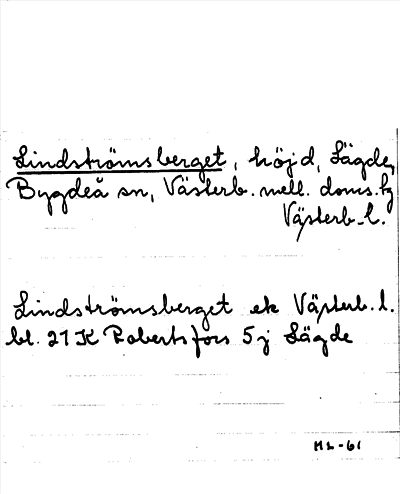 Lindströmsberget, höjd, Sägde,
Bygdeå sn, Västerb. mell. doms.hg
Västerb. l.
Lindströmsberget ek Västerb. l.
bl. 21 K Robertsfors 5 j Sägde
ML-61